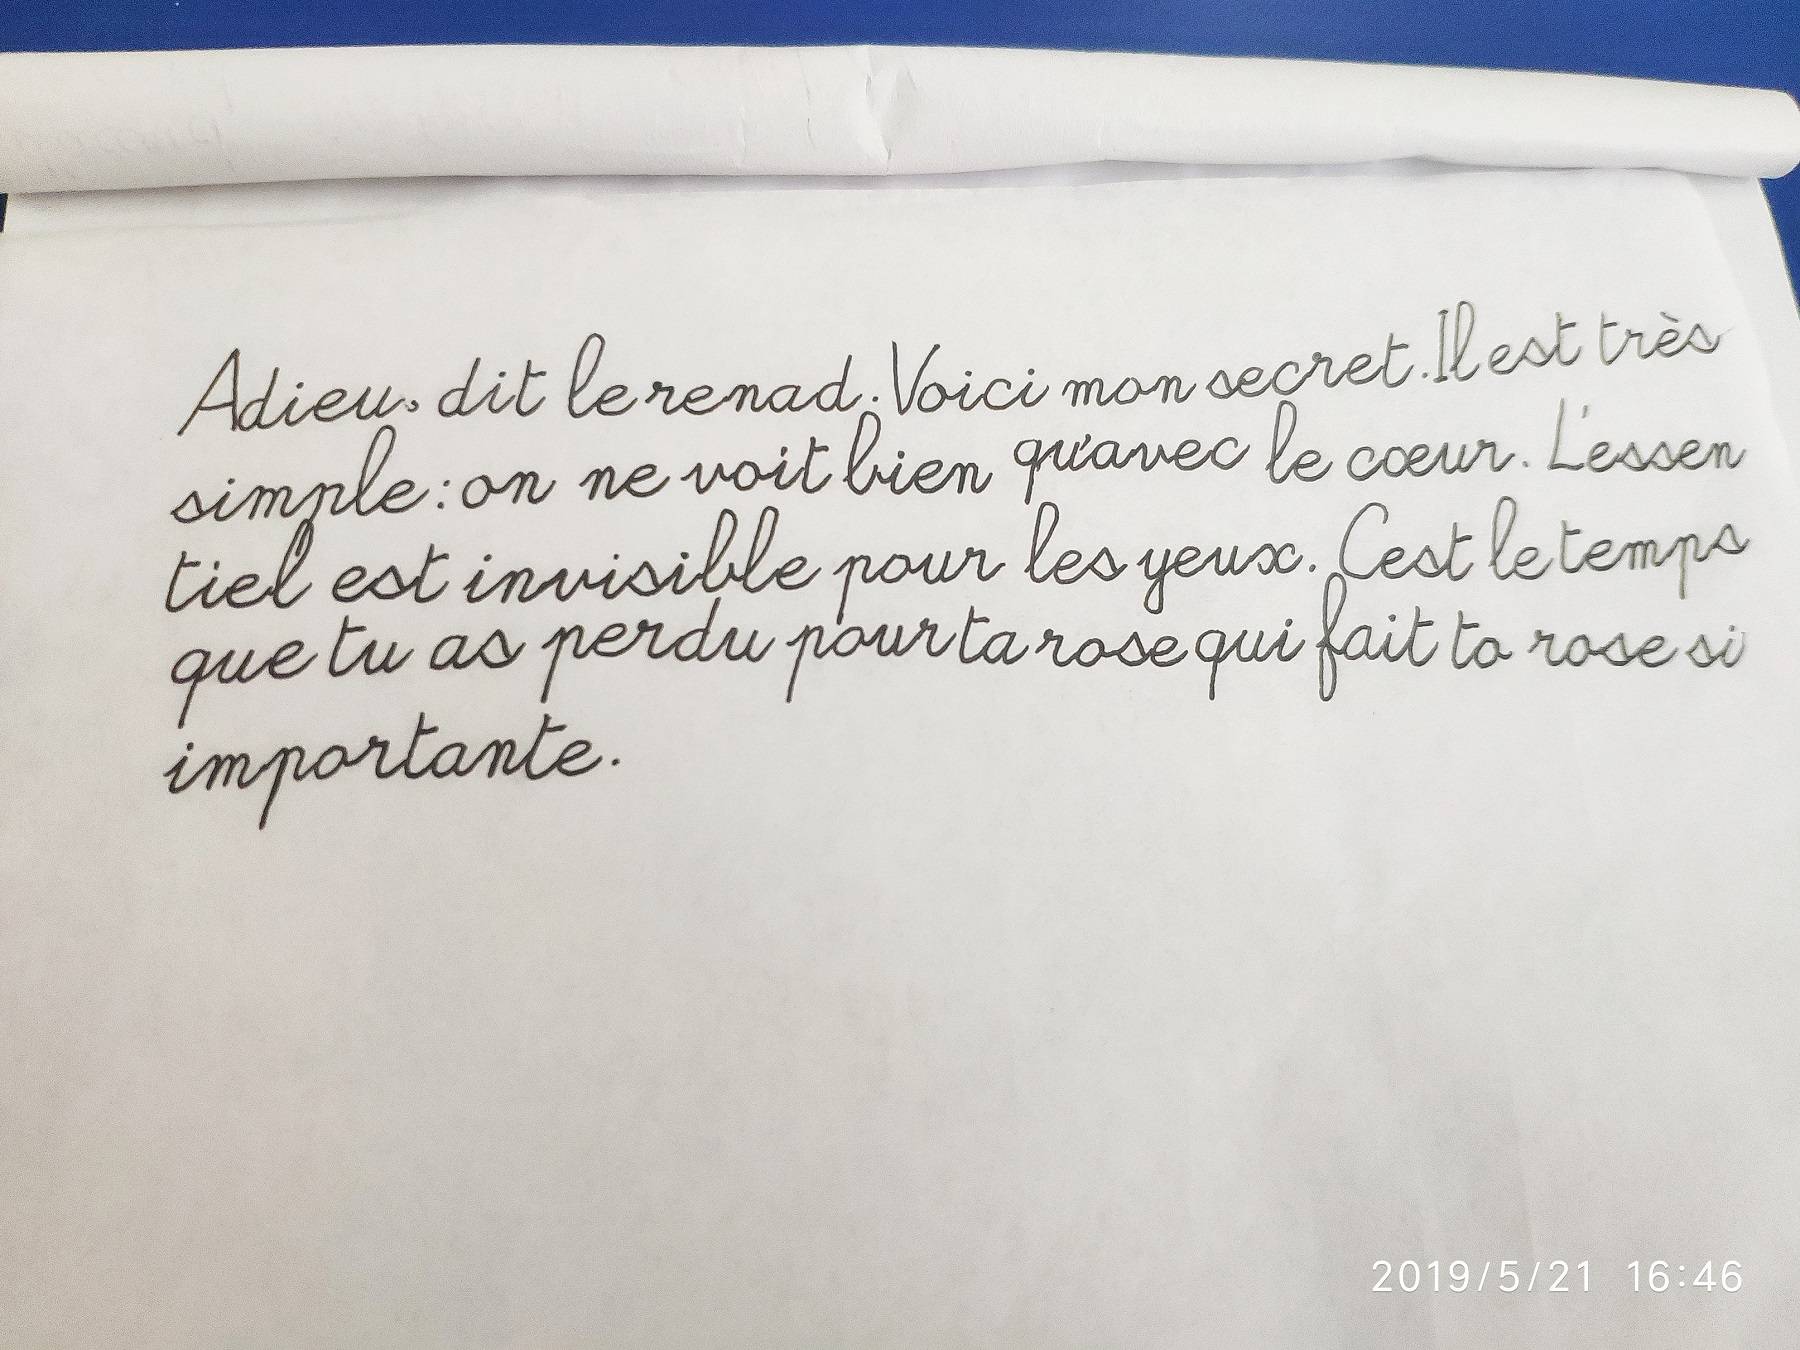 Adieu, dit le renad. Voici mon secret. Il est très
simple : on ne voit bien qu'avec le cœur. L'essen
tiel est invisible pour les yeux. Cest le temps
que tu as perdu pour ta rose qui fait to rose si
importante.
2019/5/21 16:46